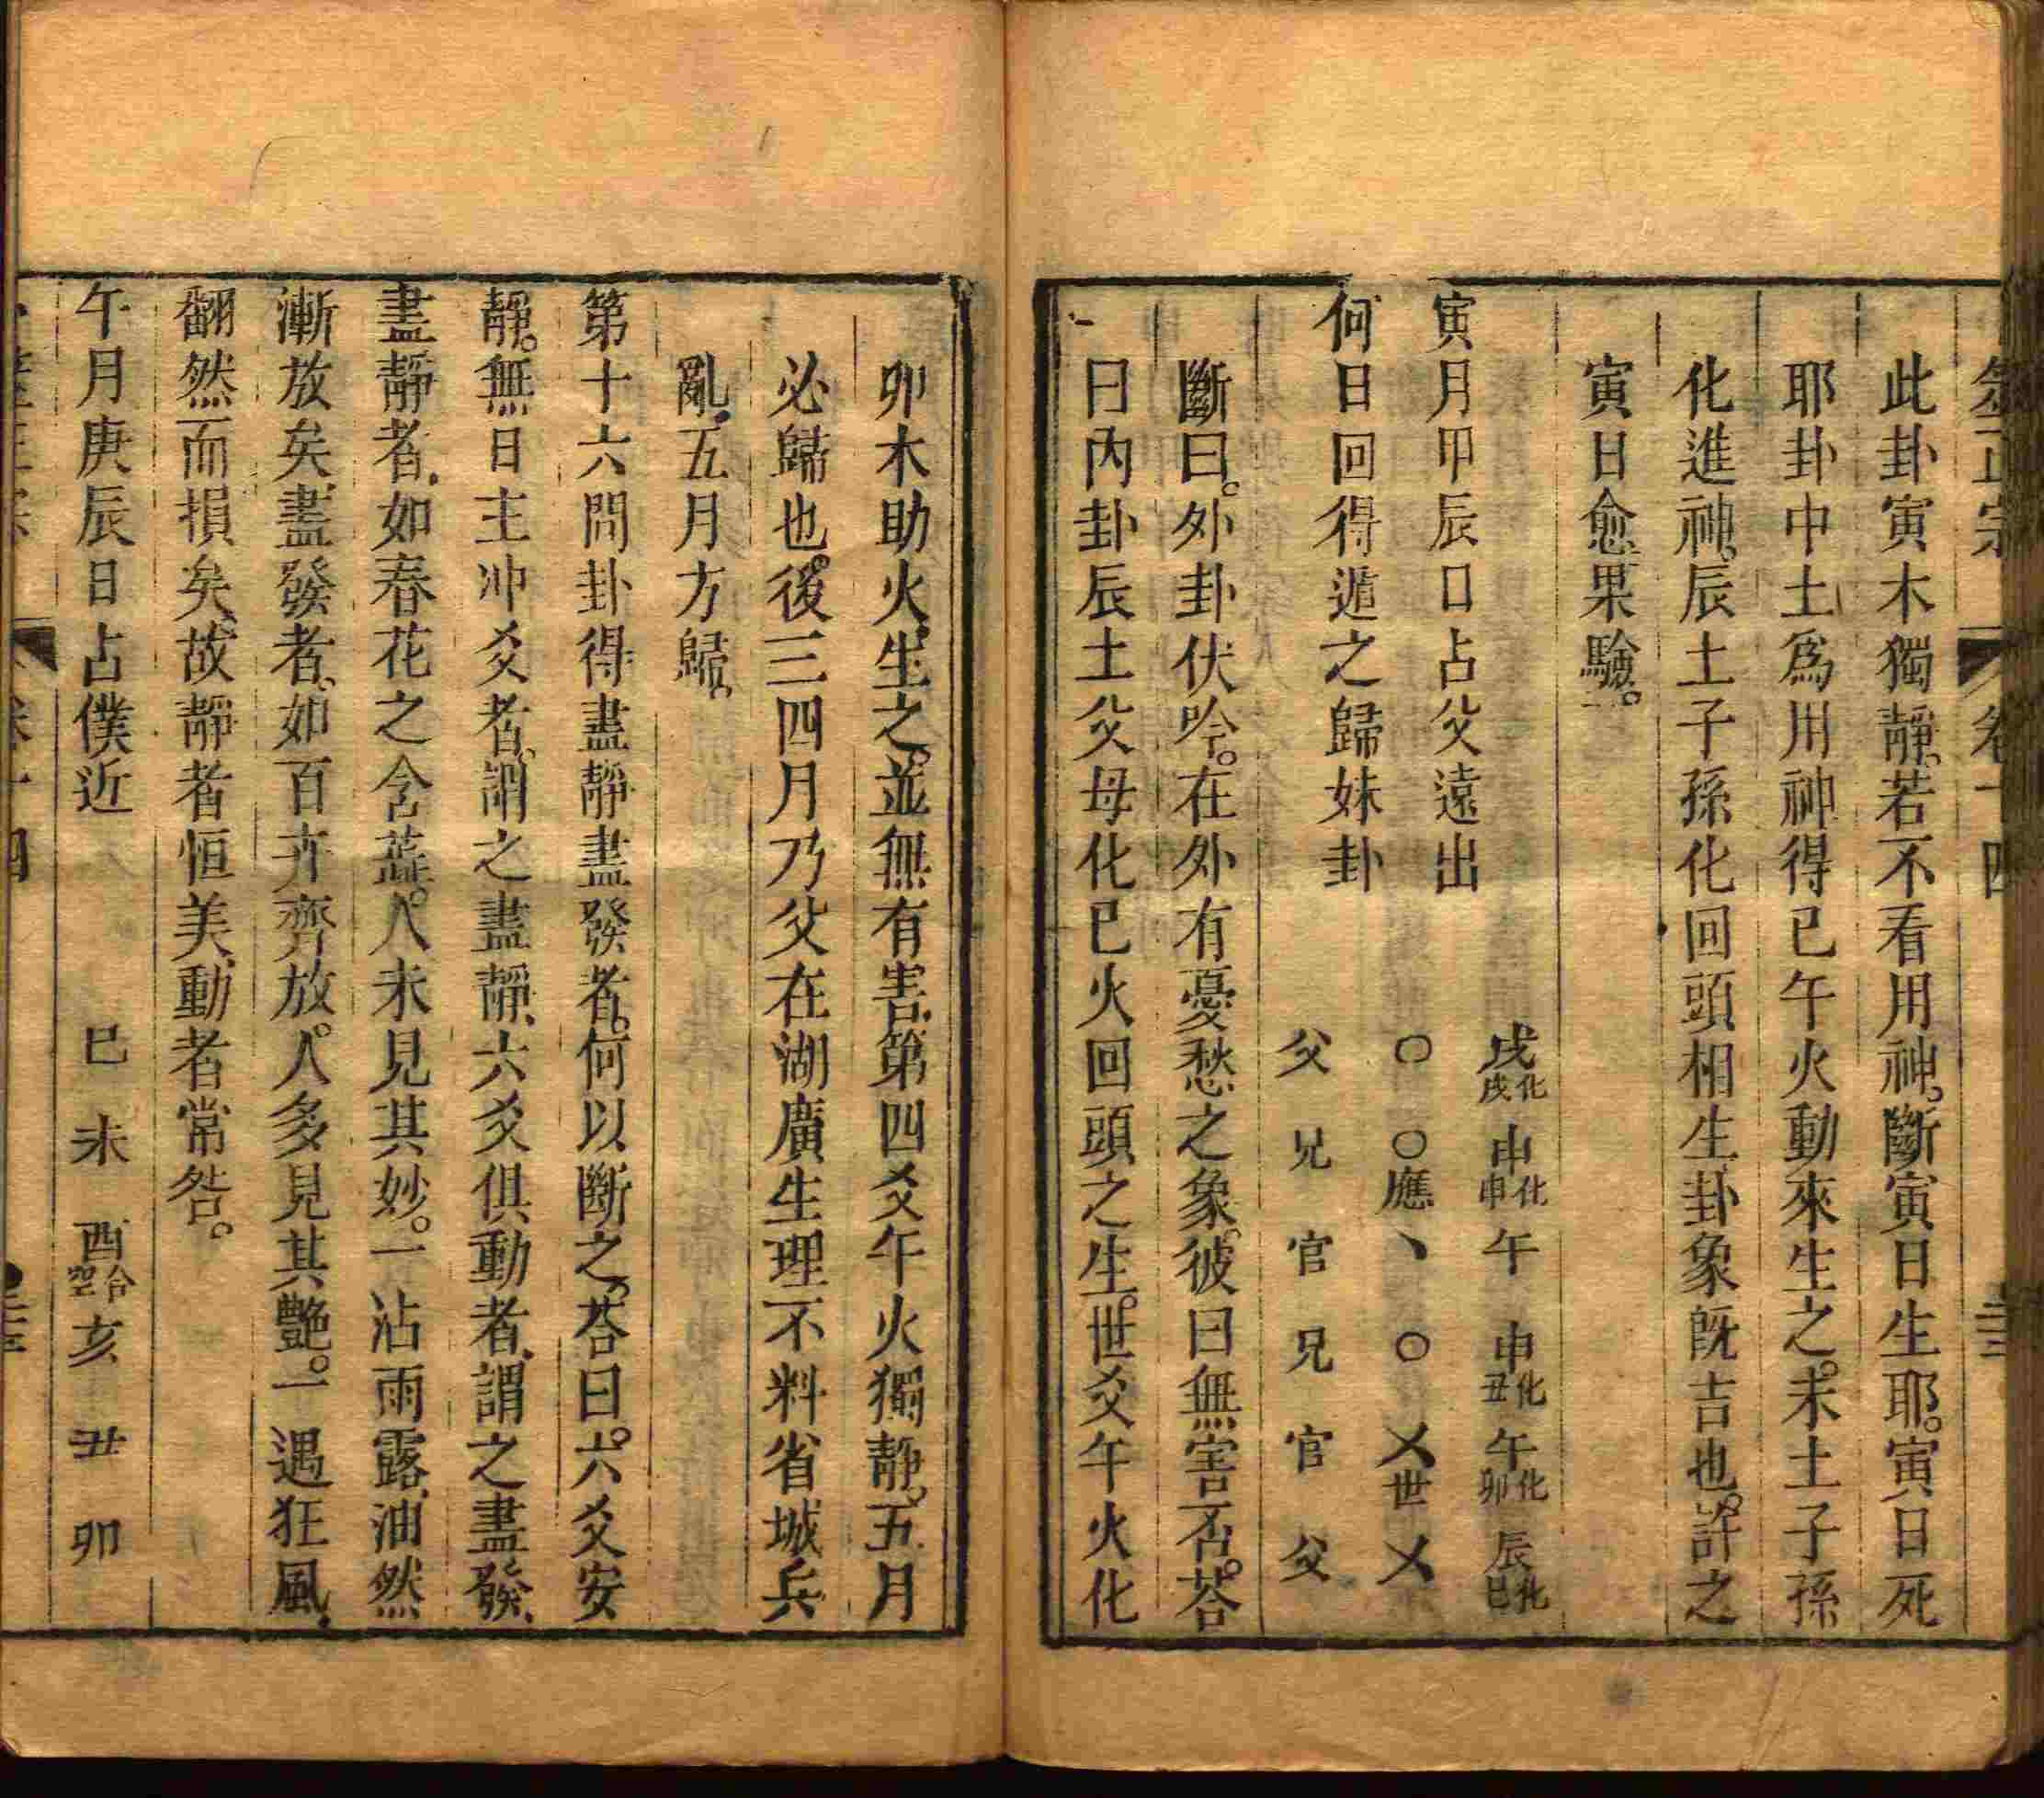 正宗 卷十四
此卦寅木獨靜。若不看用神。斷寅日生耶。寅日死
耶卦中土爲用神得巳午火動來生之。未土子孫
化進神。辰土子孫化回頭相生卦象旣吉也。許之
寅日愈果驗。
寅月甲辰日占父遠出
何日回得遁之歸妹卦
戌化戌 申化申 午 申化丑 午化卯 辰化巳
〇 〇應 、 〇 乂世 乂
父 兄 官 兄 官 父
斷曰。外卦伏吟。在外有憂愁之象。彼曰無害否。荅
曰內卦辰土父母化巳火回頭之生。世爻午火化
卯木助火。生之。並無有害。第四爻午火獨靜。五月
必歸也。後三四月乃父在湖廣生理不料省城兵
亂。五月方歸。
第十六問卦得盡靜盡發者。何以斷之。荅曰。六爻安
靜。無日主冲爻者。謂之盡靜。六爻俱動者。謂之盡發。
盡靜者。如春花之含蕋。人未見其妙。一沾雨露。油然
漸放矣。盡發者。如百卉齊放。人多見其艷。一遇狂風。
翻然而損矣。故靜者恒美。動者常咎。
午月庚辰日占僕近 巳 未 酉合空 亥 丑 卯